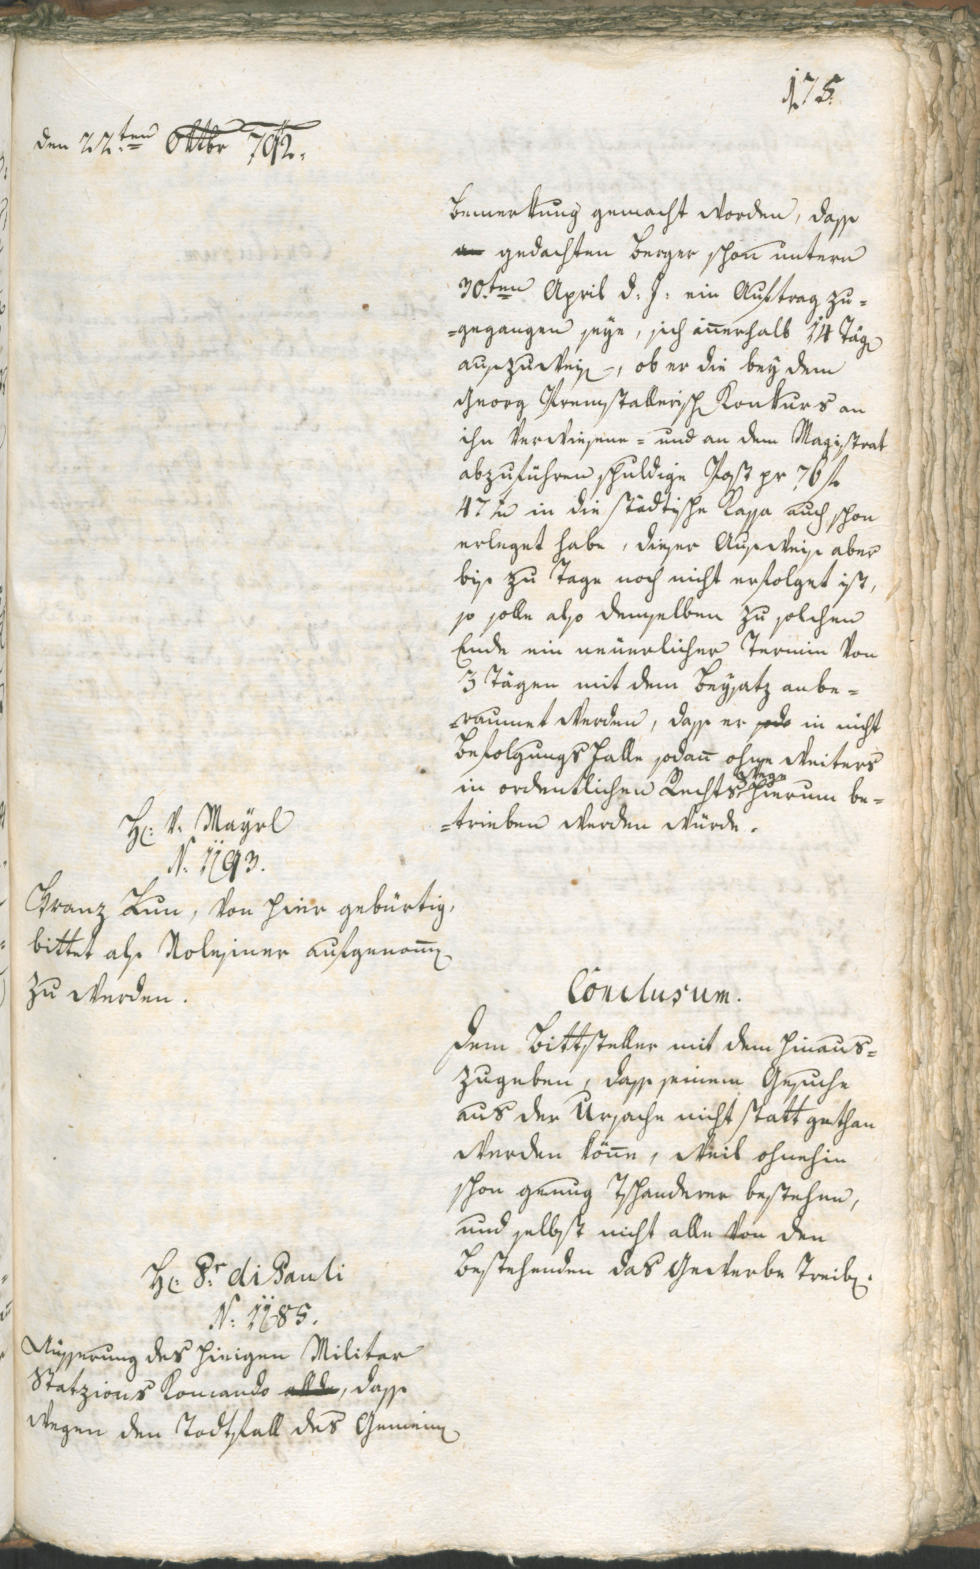 175.
den 22.ten Oktbr 792.
Bemerkung gemacht worden, dass
gedachten Berger schon untern
30.ten April d: J: ein Auftrag zu=
=gegangen seye, sich iñerhalb 14 Täg
auszuweis, ob er die bey dem
Georg Premstallerisch Konkurs an
ihn verwiesene= und an dem Magistrat
abzuführen schuldige Post pr 76 f
47 xr in die städtische Kassa auch schon
erleget habe, dieser Ausweis aber
bis zu Tage noch nicht erfolget ist,
so solle also demselben zu solchen
Ende ein neuerlicher Termin von
3 Tägen mit dem Beysatz anbe=
=raumet werden, dass er in nicht
Befolgungs Falle sodañ ohne weiters
in ordentlichen Rechts Wege hierum be=
=trieben werden würde.
H: v. Mayrl
N. 1193.
Franz Lun, von hier gebürtig,
bittet als Nolesiner aufgenom̄
zu werden.
Conclusum.
Dem Bittsteller mit dem hinaus=
zugeben, dass seinem Gesuche
aus der Ursache nicht statt gethan
werden köñe, weil ohnehin
schon genug Tschanderer bestehen,
und selbst nicht alle von den
Bestehenden das Gewerbe treib.
H: Dr. di Pauli
N: 1185.
Äusserung des hiesigen Militar
Statzions Komando alda, dass
wegen den Todtfall des Gemein